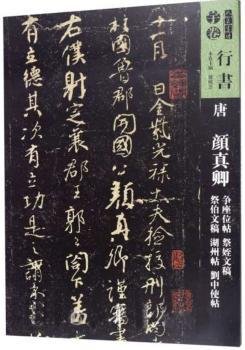 子卷
行書
唐 顏真卿
争座位帖 祭姪文稿
祭伯文稿 湖州帖 劉中使帖
十一月 日金紫光祿大夫檢校刑部尚
柱國魯郡開國公顏真卿謹奉書
右僕射定襄郡王郭公閣下蓋太
有立德其次有立功是之謂